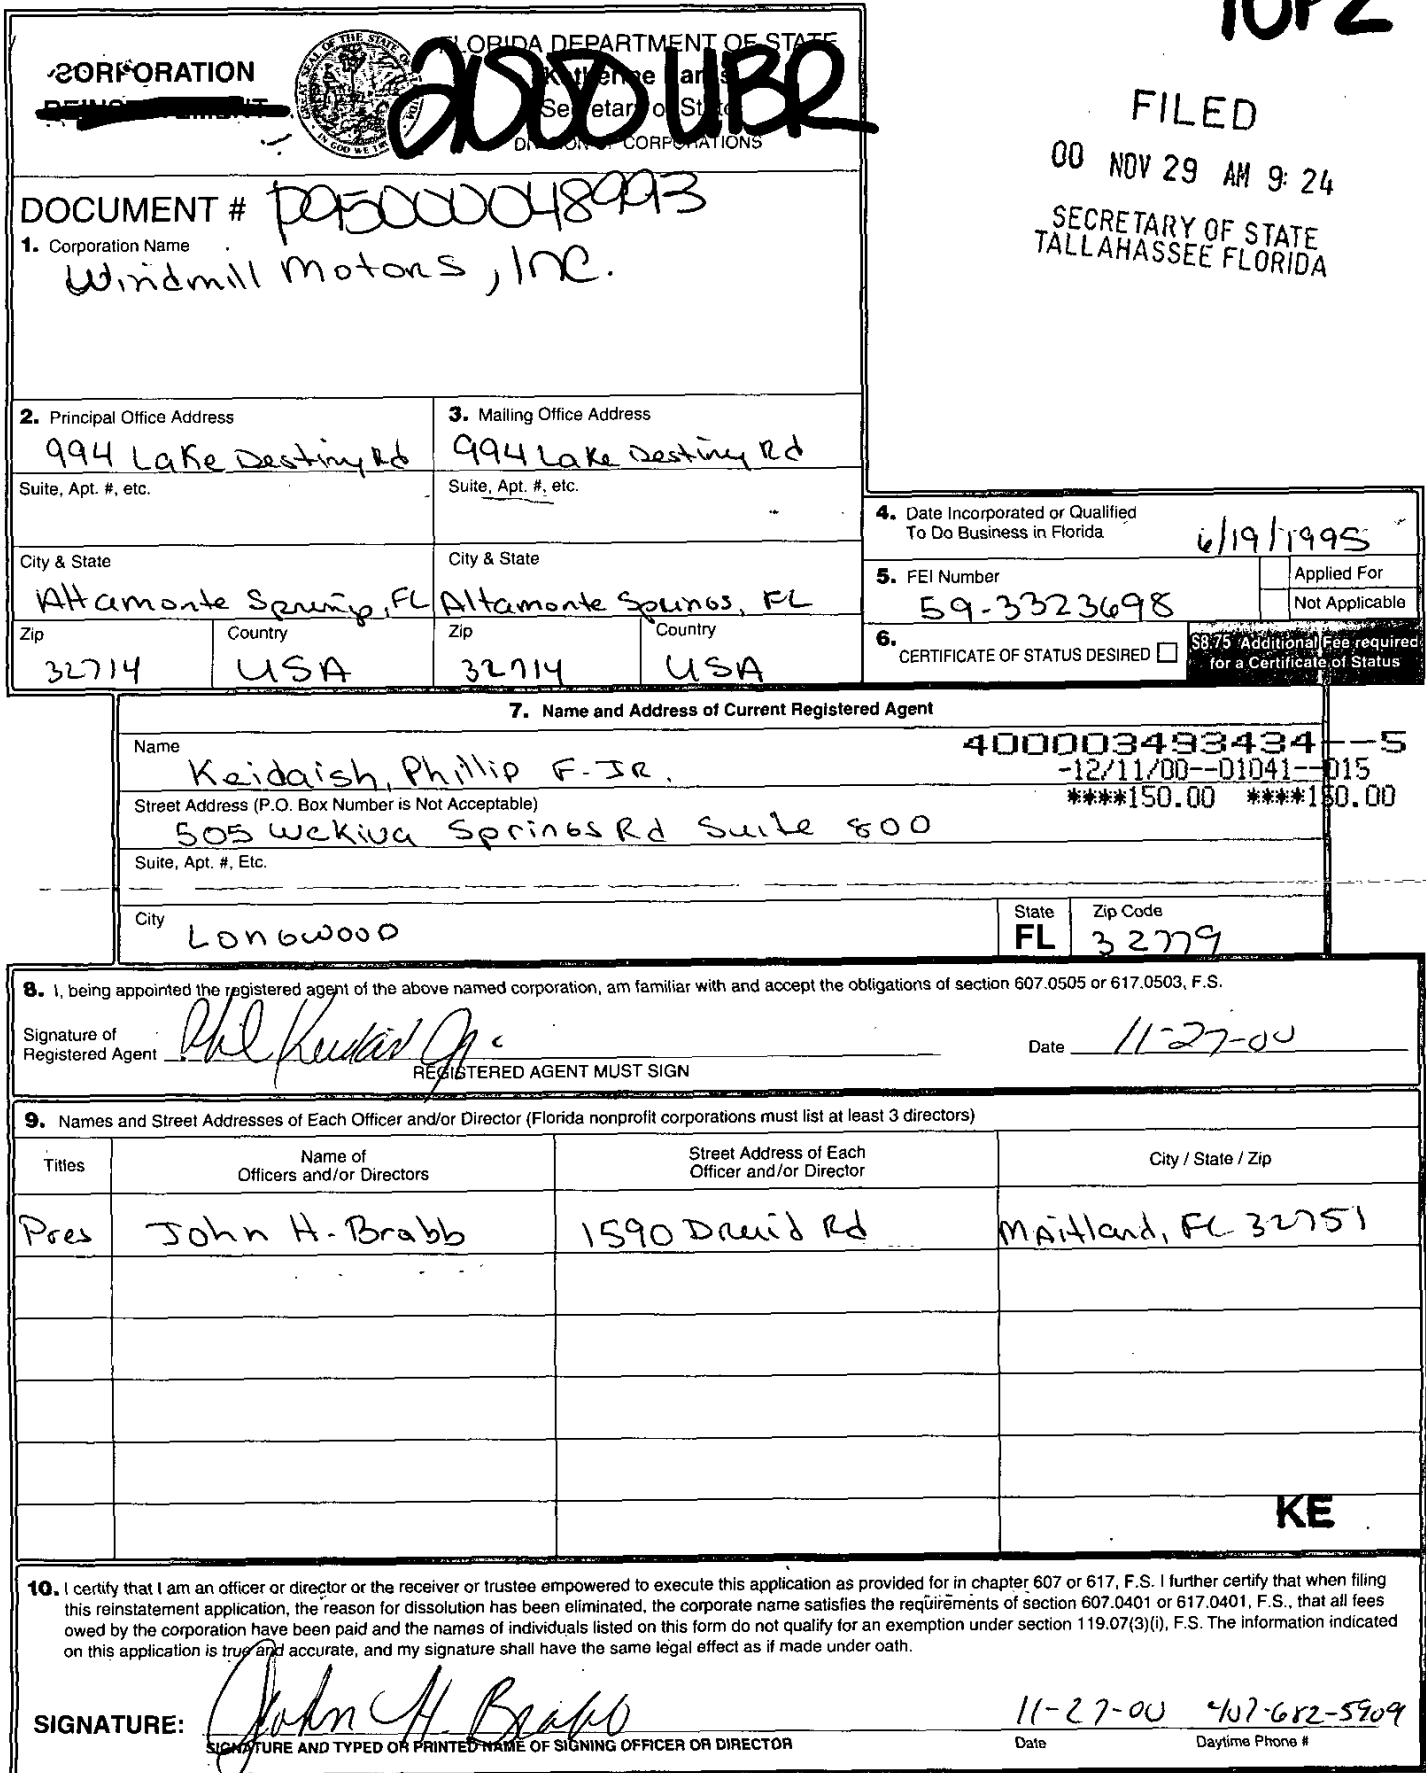 1 OF 2
CORPORATION
REINSTATEMENT
FLORIDA DEPARTMENT OF STATE
Secretary of State
DIVISION OF CORPORATIONS
2000 UBR
FILED
00 NOV 29 AM 9: 24
SECRETARY OF STATE
TALLAHASSEE FLORIDA
DOCUMENT # P95000048993
1. Corporation Name
Windmill Motors, Inc.
2. Principal Office Address
994 Lake Destiny Rd
3. Mailing Office Address
994 Lake Destiny Rd
Suite, Apt. #, etc.
Suite, Apt. #, etc.
4. Date Incorporated or Qualified
To Do Business in Florida
6/19/1995
City & State
Altamonte Springs, FL
City & State
Altamonte Springs, FL
5. FEI Number
59-3323698
Applied For
Not Applicable
Zip
32714
Country
USA
Zip
32714
Country
USA
6. CERTIFICATE OF STATUS DESIRED
$8.75 Additional Fee required
for a Certificate of Status
7. Name and Address of Current Registered Agent
400003493434--5
-12/11/00--01041--015
****150.00 ****150.00
Name
Keidaish, Phillip F. JR.
Street Address (P.O. Box Number is Not Acceptable)
505 Wekiva Springs Rd Suite 800
Suite, Apt. #, Etc.
City
Longwood
State
FL
Zip Code
32779
8. I, being appointed the registered agent of the above named corporation, am familiar with and accept the obligations of section 607.0505 or 617.0503, F.S.
Signature of
Registered Agent
Date 11-27-00
REGISTERED AGENT MUST SIGN
9. Names and Street Addresses of Each Officer and/or Director (Florida nonprofit corporations must list at least 3 directors)
Titles
Name of
Officers and/or Directors
Street Address of Each
Officer and/or Director
City / State / Zip
Pres John H. Brabb 1590 Druid Rd Maitland, FL 32751
KE
10. I certify that I am an officer or director or the receiver or trustee empowered to execute this application as provided for in chapter 607 or 617, F.S. I further certify that when filing
this reinstatement application, the reason for dissolution has been eliminated, the corporate name satisfies the requirements of section 607.0401 or 617.0401, F.S., that all fees
owed by the corporation have been paid and the names of individuals listed on this form do not qualify for an exemption under section 119.07(3)(i), F.S. The information indicated
on this application is true and accurate, and my signature shall have the same legal effect as if made under oath.
SIGNATURE: John H. Brabb 11-27-00 407-682-5909
SIGNATURE AND TYPED OR PRINTED NAME OF SIGNING OFFICER OR DIRECTOR
Date
Daytime Phone #